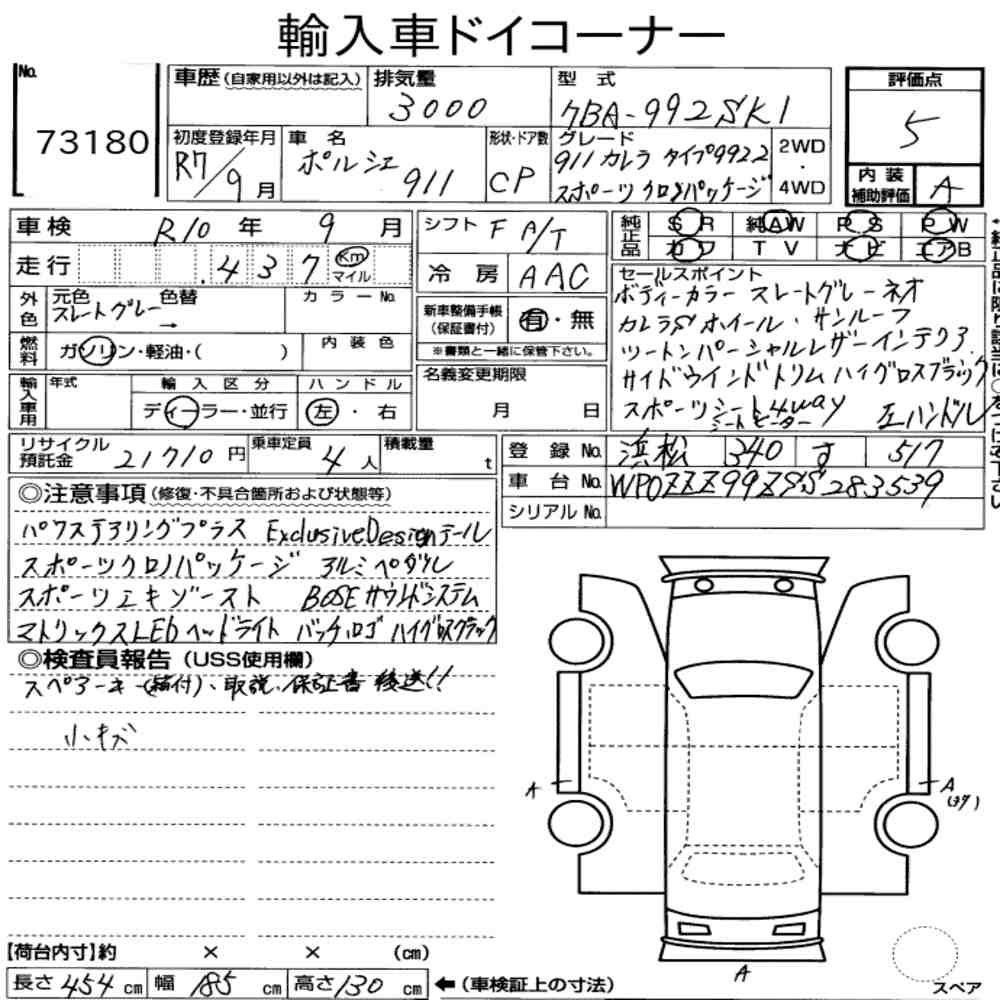 輸入車ドイコーナー
No.
73180
車歴（自家用以外は記入）
排気量
3000
型式
7BA-992SK1
評価点
5
初度登録年月
R7/9月
車名
ポルシェ 911
形状・ドア数
CP
グレード
911カレラ タイプ992.2
スポーツクロノパッケージ
2WD
・
4WD
内装
補助評価
A
車検 R10年 9月
走行 .437 Km
マイル
シフト F A/T
冷房 AAC
純正品
SR 純AW PS PW
カワ TV ナビ エアB
外色
元色 色替
スレートグレー →
カラーNo.
燃料
ガソリン・軽油・（ ）
内装色
新車整備手帳
（保証書付）
有・無
※書類と一緒に保管下さい。
セールスポイント
ボディーカラー スレートグレーネオ
カレラSホイール・サンルーフ
ツートンパーシャルレザーインテリア
サイドウインドトリムハイグロスブラック
スポーツシート4way 左ハンドル
シートヒーター
輸入車用
年式
輸入区分
ディーラー・並行
ハンドル
左・右
名義変更期限
月 日
リサイクル
預託金
21710円
乗車定員
4人
積載量
t
登録No. 浜松 340 す 517
車台No. WP0ZZZ99ZSS283539
シリアルNo.
◎注意事項（修復・不具合箇所および状態等）
パワステアリングプラス ExclusiveDesignテール
スポーツクロノパッケージ アルミペダル
スポーツエキゾースト BOSEサウンドシステム
マトリックスLEDヘッドライト バッチロゴ ハイグロスブラック
◎検査員報告（USS使用欄）
スペアーキー(箱付)、取説、保証書 後送!!
小キズ
A
A
A
【荷台内寸】約 × × （cm）
長さ 454 cm 幅 185 cm 高さ 130 cm ←（車検証上の寸法）
スペア